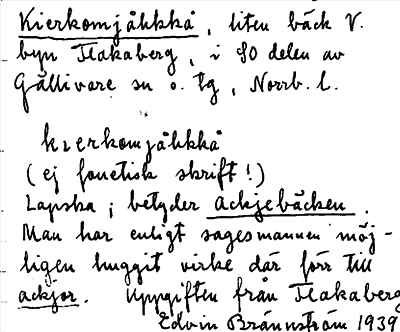 Kierkomjåhkkå, liten bäck V.
byn Flakaberg, i SO delen av
Gällivare sn o. tg, Norrb. l.
kierkomjåhkkå
(ej fonetisk skrift!)
Lapska; betyder ackjebäcken.
Man har enligt sagesmannen möj-
ligen huggit virke där förr till
ackjor. Uppgiften från Flakaberg
Edvin Brännström 1939